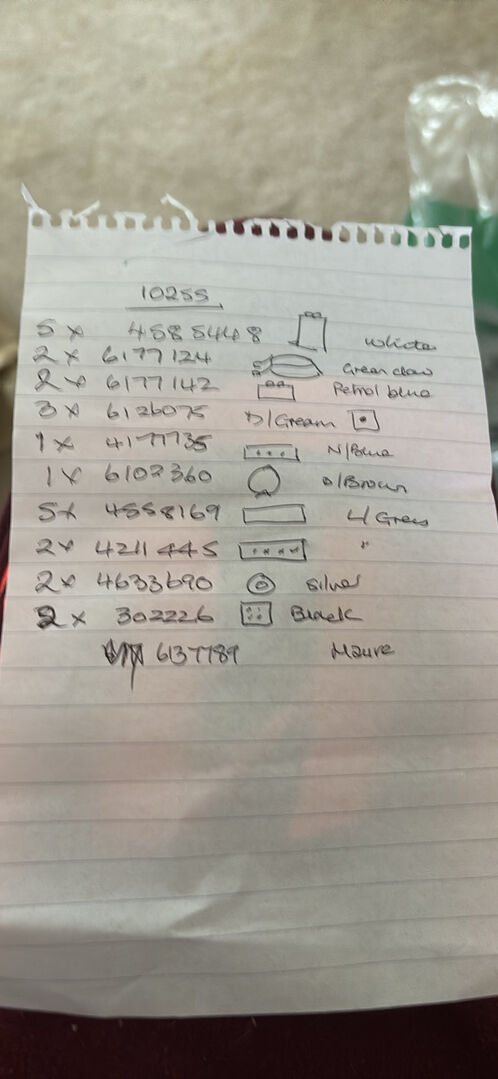 10255
5 x 4585448 White
2 x 6177124 Green claw
2 x 6177142 Petrol blue
3 x 6126075 D/Cream
1 x 4177735 N/Blue
1 x 6102360 D/Brown
5 x 4558169 L/Grey
2 x 4211445 "
2 x 4633690 Silver
2 x 302226 Black
6137789 Mauve